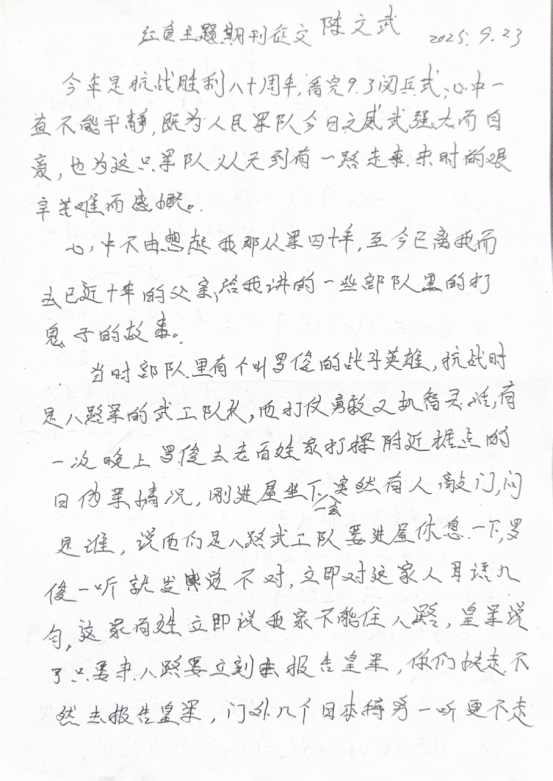 红色主题期刊征文 陈文武 2025.9.23
今年是抗战胜利八十周年,看完9.3阅兵式,心中一
直不能平静,既为人民军队今日之威武强大而自
豪,也为这只军队从无到有一路走来.来时的艰
辛苦难而感慨。
心中不由想起我那从军四十年,至今已离我而
去已近十年的父亲,给我讲的一些部队里的打
鬼子的故事。
当时部队里有个叫罗俊的战斗英雄,抗战时
是八路军的武工队长,而打仗勇敢又机智灵活,有
一次晚上罗俊去老百姓家打探附近据点的
日伪军情况,刚进屋坐下一会突然有人敲门,问
是谁,说而们是八路武工队要进屋休息一下,罗
俊一听就发觉不对,立即对这家人耳语几
句,这家百姓立即说我家不能住八路,皇军说
了只要来八路要立刻去报告皇军,你们快走不
然去报告皇军,门外几个日本特务一听更不走